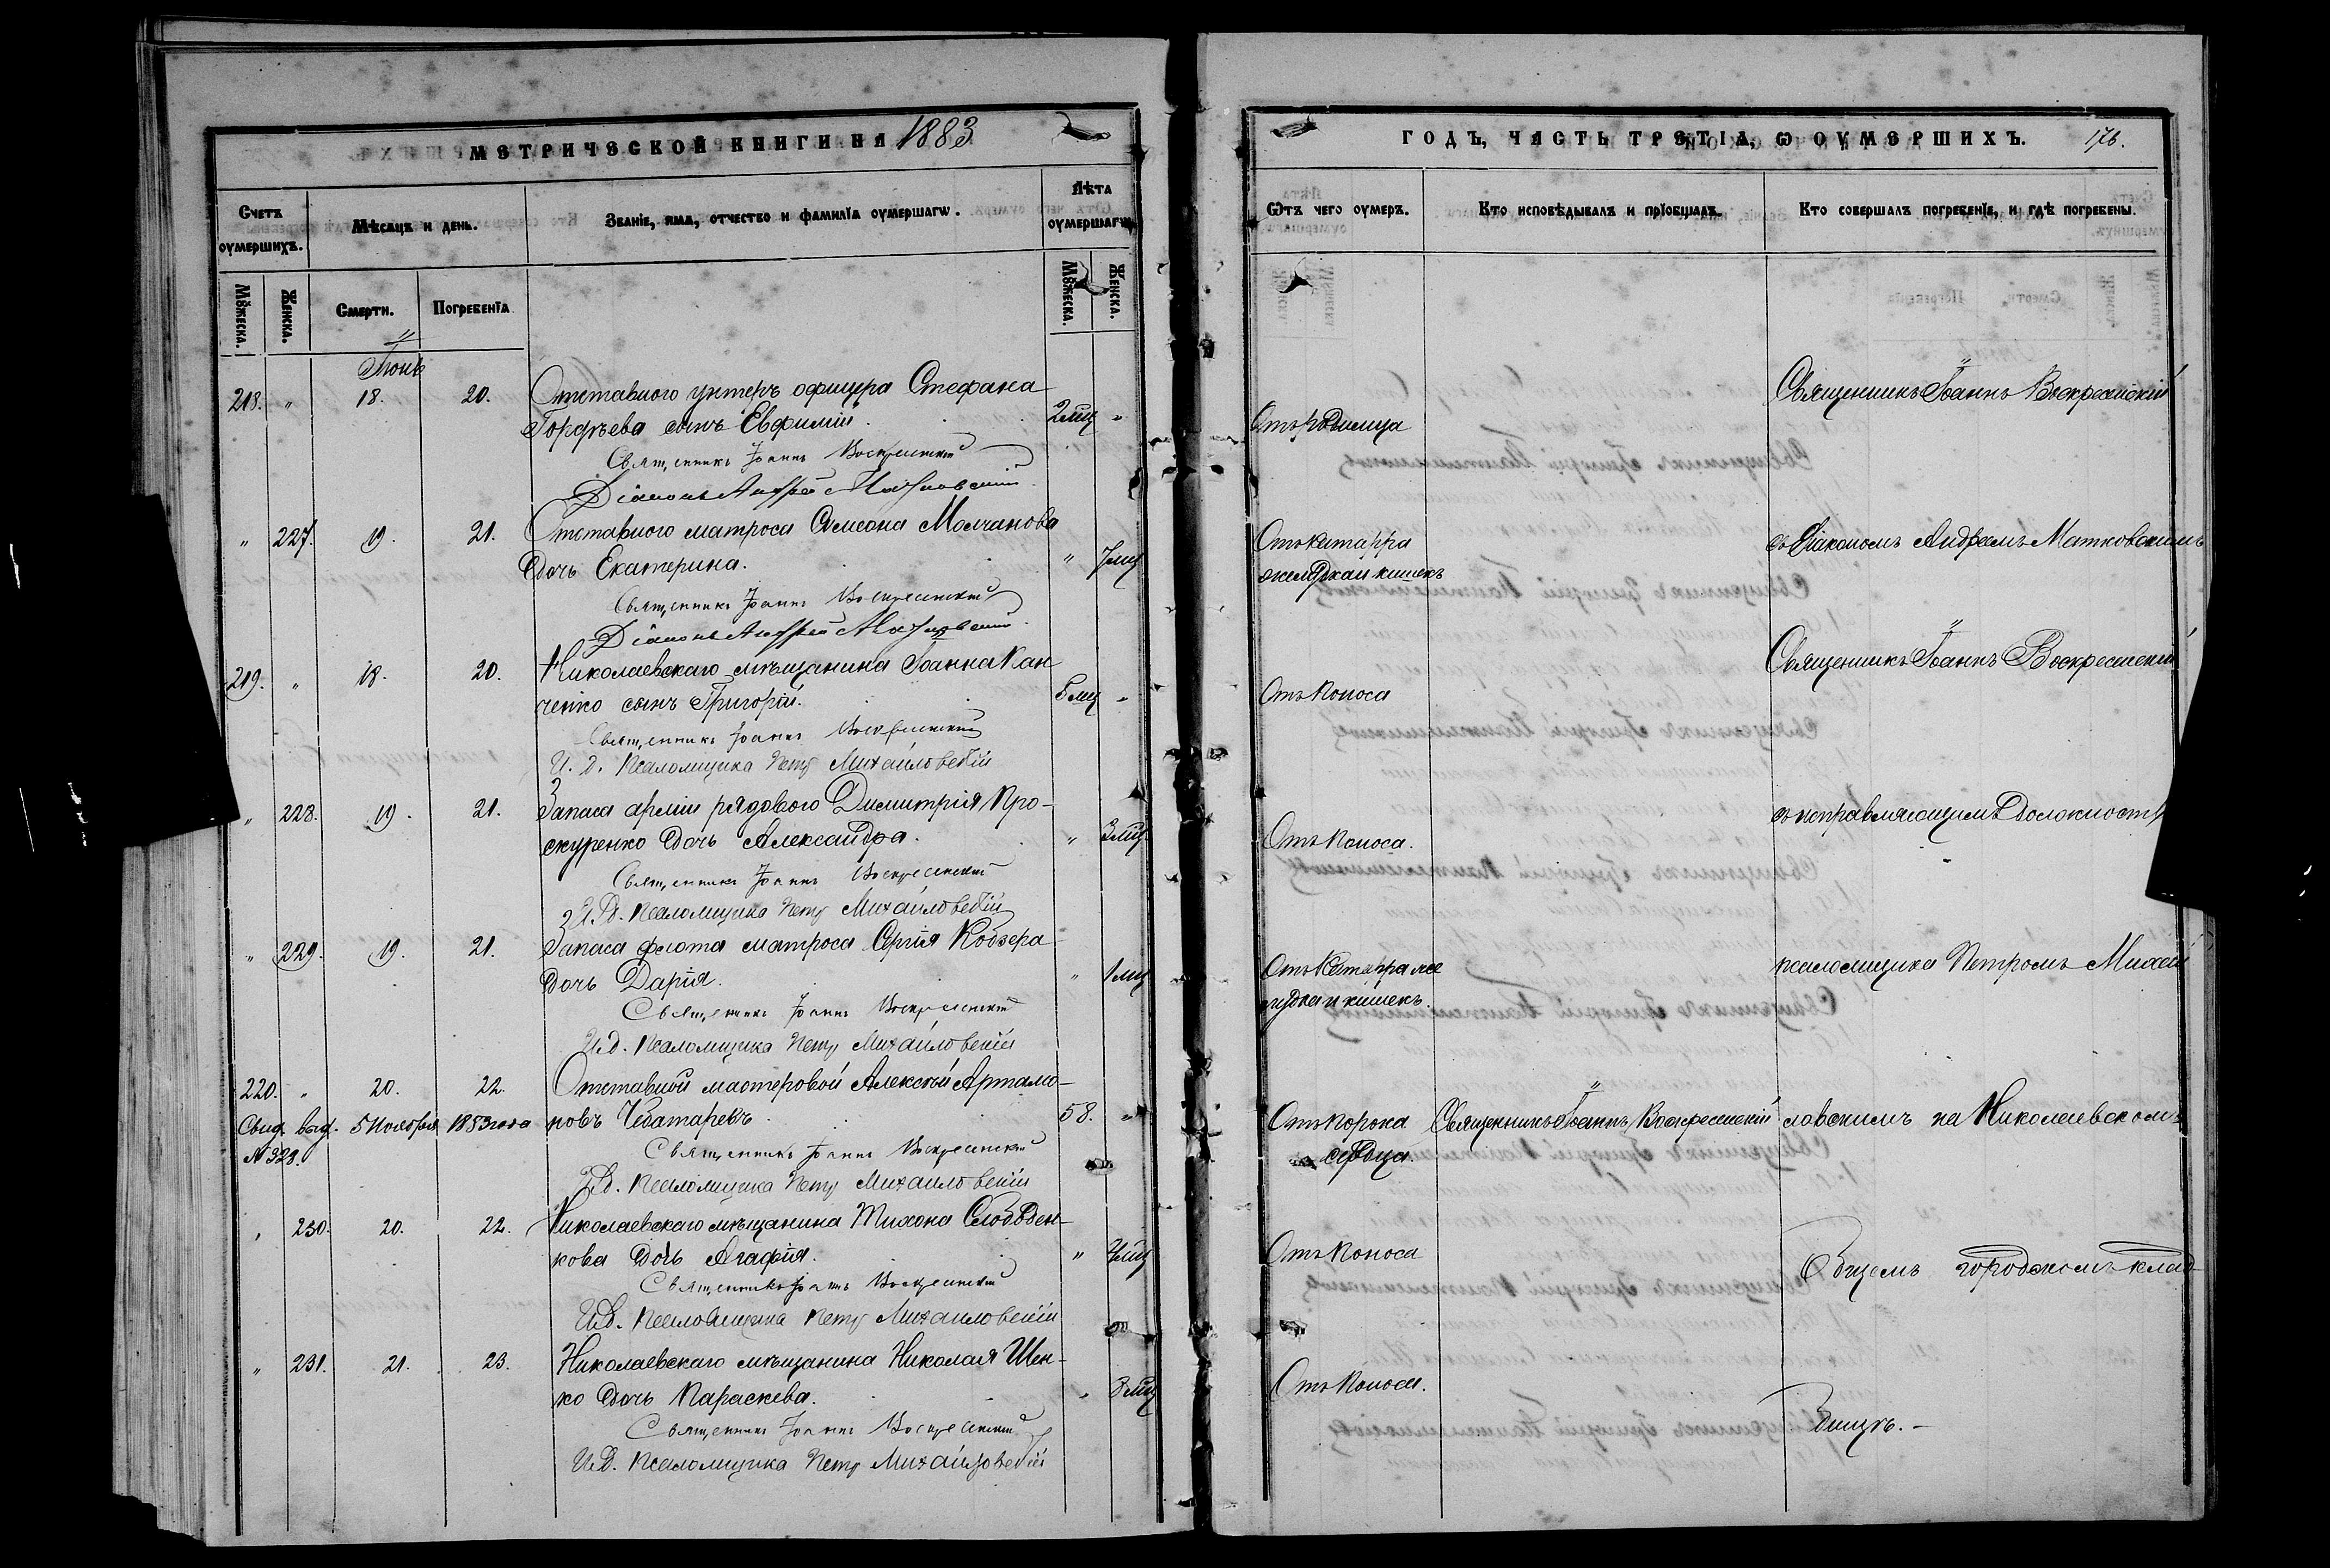 МЕТРИЧЕСКОЙ КНИГИ НА 1883
Счетъ оумершихъ.
Мѣсяцъ и день.
Званіе, имя, отчество и фамилія оумершагѡ.
Лѣта оумершагѡ
Мꙋжеска.
Женска.
Смерти.
Погребенія
Мꙋжеска.
Женска.
Іюнь
218. " 18. 20. Отставного унтеръ офицера Стефана
Гордѣева сынъ Евфимій. 2 мц "
Священникъ Іоаннъ Воскресенскій
Діаконъ Андрей Матковскій
" 227. 19. 21. Отставного матроса Симеона Молчанова
дочь Екатерина. " 7 мц
Священникъ Іоаннъ Воскресенскій
Діаконъ Андрей Матковскій
219. " 18. 20. Николаевскаго мѣщанина Іоанна Кан
ченко сынъ Григорій. 5 мц "
Священникъ Іоаннъ Воскресенскій
И. д. Псаломщика Петр Михайловскій
" 228. 19. 21. Запаса арміи рядового Димитрія Про-
скуренко дочь Александра. " 3 мц
Священникъ Іоаннъ Воскресенскій
И. д. Псаломщика Петр Михайловскій
" 229. 19. 21. Запаса флота матроса Сергія Кобзера
дочь Дарія. " 1 мц
Священникъ Іоаннъ Воскресенскій
И.д. Псаломщика Петр Михайловскій
220. " 20. 22. Отставной мастеровой Алексѣй Артамо-
Свид. выд. 5 Ноября 1883 года новъ Чеботаревъ 58. "
№ 328.
Священникъ Іоаннъ Воскресенскій
И.д. Псаломщика Петр Михайловскій
" 230. 20. 22. Николаевскаго мѣщанина Тихона Слободен-
кова дочь Агафія. " мц
Священникъ Іоаннъ Воскресенскій
И.д. Псаломщика Петр Михайловскій
" 231. 21. 23. Николаевскаго мѣщанина Николая Шен-
ко дочь Параскева. " 3 мц
Священникъ Іоаннъ Воскресенскій
И.д. Псаломщика Петр Михайловскій
ГОДЪ, ЧАСТЬ ТРЕТІА, Ѡ ОУМЕРШИХЪ. 176.
Ѿтъ чего оумеръ.
Кто исповѣдывалъ и пріобщалъ.
Кто совершалъ погребеніе, и гдѣ погребены.
Священникъ Іоаннъ Воскресенскій
Отъ родимца
Отъ катарра
желудка и кишекъ
съ Діакономъ Андреемъ Матковскимъ
Священникъ Іоаннъ Воскресенскій
Отъ поноса
съ исправляющимъ должность
Отъ поноса.
Отъ Катарра же
лудка и кишекъ.
псаломщика Петромъ Михай
Отъ порока Священникъ Іоаннъ Воскресенскій ловскимъ на Николаевскомъ
сердца.
Отъ поноса
Общемъ городскомъ клад
Отъ поноса.
бищѣ.-